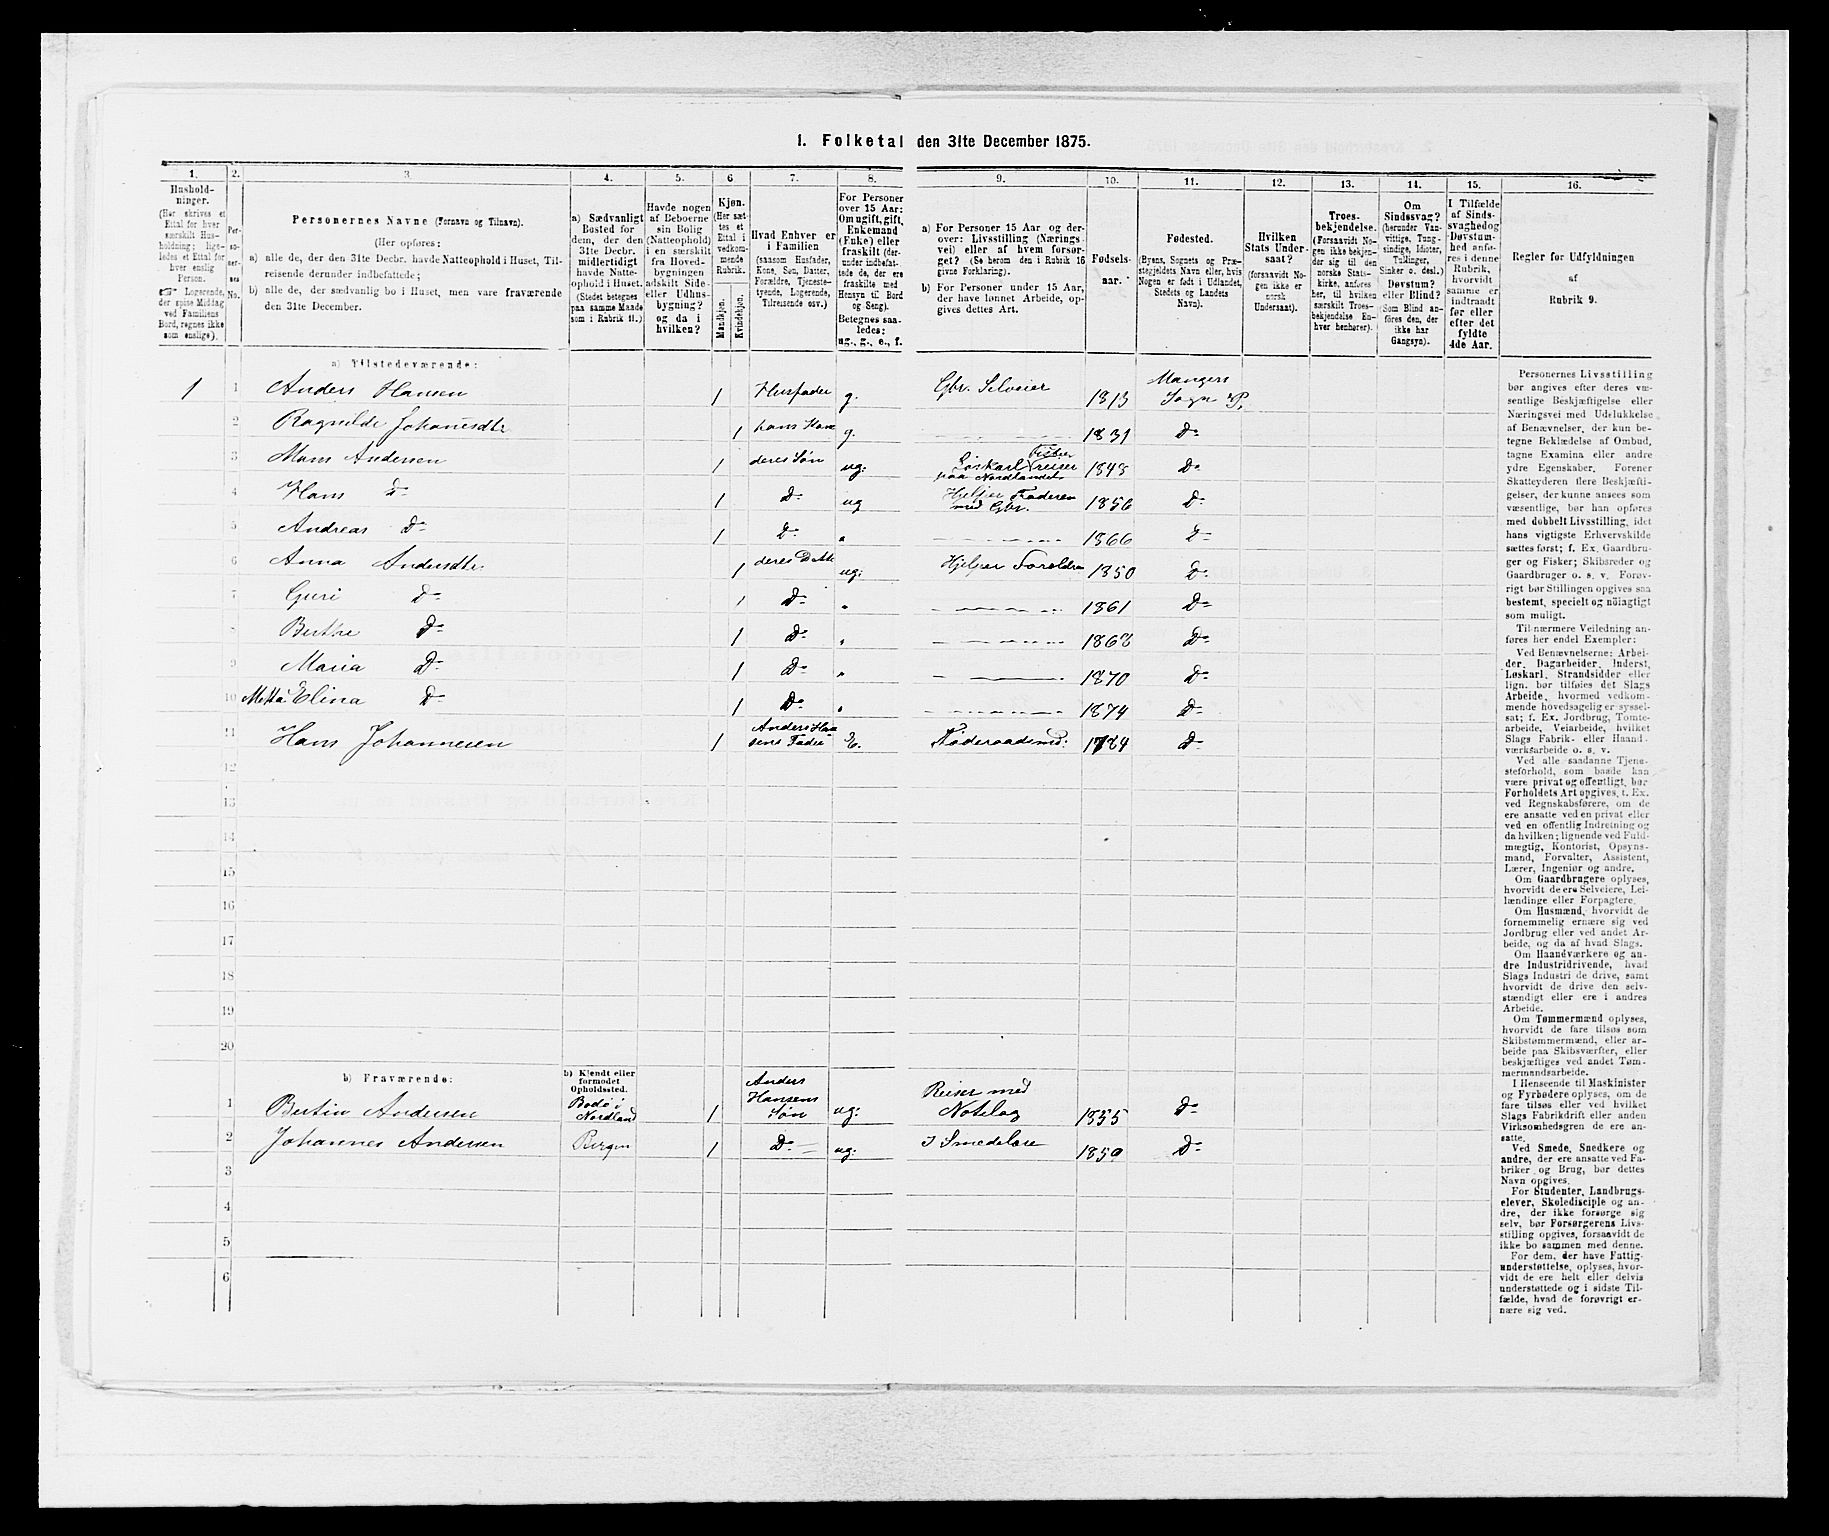 1. Folketal den 31te December 1875.
1. 2. 3. 4. 5. 6 7. 8. 9. 10. 11. 12. 13. 14. 15. 16.
Hushold-
ninger.
(Her skrives et
Ettal for hver
særskilt Hus-
holdning; lige-
ledes et Ettal for
hver enslig
Person.
☞ Logerende,
der spise Middag
ved Familiens
Bord, regnes ikke
som enslige).
Per-
so-
ner-
nes
No.
Personernes Navne (Fornavn og Tilnavn).
(Her opføres:
a) alle de, der den 31te Decbr. havde Natteophold i Huset, Til-
reisende derunder indbefattede;
b) alle de, der sædvanlig bo i Huset, men vare fraværende
den 31te December.
a) Sædvanligt
Bosted for
dem, der den
31te Decbr.
midlertidigt
havde Natte-
ophold i Huset.
(Stedet betegnes
paa samme Maade
som i Rubrik 11.)
Havde nogen
af Beboerne
sin Bolig
(Natteophold)
i en særskilt
fra Hoved-
bygningen
adskilt Side-
eller Udhus-
bygning?
og da i
hvilken?
Kjøn.
(Her sæt-
tes et
Ettal i
vedkom-
mende
Rubrik.
Mandkjøn.
Kvindekjøn.
Hvad Enhver er
i Familien
(saasom Husfader,
Kone, Søn, Datter,
Forældre, Tjeneste-
tyende, Logerende,
Tilreisende osv.)
For Personer
over 15 Aar:
Om ugift, gift,
Enkemand
(Enke) eller
fraskilt (der-
under indbefat-
tede de, der ere
fraskilte med
Hensyn til Bord
og Seng).
Betegnes saa-
ledes:
ug., g., e., f.
a) For Personer 15 Aar og der-
over: Livsstilling (Nærings-
vei) eller af hvem forsør-
get? (Se herom den i Rubrik 16
givne Forklaring).
b) For Personer under 15 Aar,
der have lønnet Arbeide, op-
gives dettes Art.
Fødsels-
aar.
Fødested.
(Byens, Sognets og Præ-
stegjeldets Navn eller, hvis
Nogen er født i Udlandet,
Stedets og Landets
Navn).
Hvilken
Stats Under-
saat?
(forsaavidt No-
gen ikke er
norsk
Undersaat).
Troes-
bekjendelse.
(Forsaavidt No-
gen ikke bekjen-
der sig til den
norske Stats-
kirke, anføres
her, til hvilken
særskilt Troes-
bekjendelse En-
hver henhører).
Om
Sindssvag?
(herunder Van-
vittige, Tung-
sindige, Idioter,
Tullinger,
Sinker o. desl.)
Døvstum?
eller Blind?
(Som Blind an-
føres den, der
ikke har
Gangsyn).
I Tilfælde
af Sinds-
svaghed og
Døvstum-
hed anfø-
res i denne
Rubrik,
hvorvidt
samme er
indtraadt
før eller
efter det
fyldte
4de Aar.
Regler for Udfyldningen
af
Rubrik 9.
a) Tilstedeværende:
1 1 Anders Hansen 1 Husfader g. Gbr. Selveier 1813 Mangers
Sogn & P.
2 Ragnilde Johanesdtr 1 hans Kone g. 1831 Do
3 Mons Andersen 1 deres Søn ug: Løskarl Fisker reiser
paa Nordlandet 1848 Do
4 Hans Do 1 Do ug Hjelper Faderen
med Gbr. 1856 Do
5 Andreas Do 1 Do „ 1866 Do
6 Anna Andersdtr 1 deres Datte ug: Hjelper Foreldre 1850 Do
7 Guri Do 1 Do „ 1861 Do
8 Berthe Do 1 Do „ 1868 Do
9 Maria Do 1 Do „ 1870 Do
10 Metta Elina Do 1 Do „ 1874 Do
11 Hans Johannesen 1 Anders Han
sens Fader E. Føderaadsmd: 1784 Do
12
13
14
15
16
17
18
19
20
b) Fraværende:
b) Kjendt eller
formodet
Opholdssted.
1 Bertin Andersen Bodø i
Nordland 1 Anders
Hansens
Søn ug: Reiser med
Notelag 1855 Do
2 Johannes Andersen Bergen 1 Do — ug: I Smedelære 1850 Do
3
4
5
6
Personernes Livsstilling
bør angives efter deres væ-
sentlige Beskjæftigelse eller
Næringsvei med Udelukkelse
af Benævnelser, der kun be-
tegne Beklædelse af Ombud,
tagne Examina eller andre
ydre Egenskaber. Forener
Skatteyderen flere Beskjæfti-
gelser, der kunne ansees som
væsentlige, bør han opføres
med dobbelt Livsstilling, idet
hans vigtigste Erhvervskilde
sættes først; f. Ex. Gaardbru-
ger og Fisker; Skibsreder og
Gaardbruger o. s. v. Forøv-
rigt bør Stillingen opgives saa
bestemt, specielt og nöiagtigt
som muligt.
Til nærmere Veiledning an-
føres her endel Exempler:
Ved Benævnelserne: Arbei-
der, Dagarbeider, Inderst,
Løskarl, Strandsidder eller
lign. bør tilføies det Slags
Arbeide, hvormed vedkom-
mende hovedsagelig er syssel-
sat; f. Ex. Jordbrug, Tomte-
arbeide, Veiarbeide, hvilket
Slags Fabrik- eller Haand-
værksarbeide o. s. v.
Ved alle saadanne Tjene-
steforhold, som baade kan
være privat og offentligt, bør
Forholdets Art opgives, f. Ex.
ved Regnskabsførere, om de
ere ansatte ved en privat eller
ved en offentlig Indretning og
da hvilken; lignende ved Fuld-
mægtig, Kontorist, Opsyns-
mand, Forvalter, Assistent,
Lærer, Ingeniør og andre.
Om Gaardbrugere oplyses,
hvorvidt de ere Selveiere, Lei-
lændinge eller Forpagtere.
Om Husmænd, hvorvidt de
fornemmelig ernære sig ved
Jordbrug eller ved andet Ar-
beide, og da af hvad Slags.
Om Haandværkere og an-
dre Industridrivende, hvad
Slags Industri de drive, samt
hvorvidt de drive den selv-
stændigt eller ere i andres
Arbeide.
Om Tømmermænd oplyses,
hvorvidt de fare tilsøs som
Skibstømmermænd, eller ar-
beide paa Skibsværfter, eller
beskjæftiges ved andet Tøm-
mermandsarbeide.
I Henseende til Maskinister
og Fyrbødere oplyses, om de
fare tilsøs eller ved hvilket
Slags Fabrikdrift eller anden
Virksomhedsgren de ere an-
satte.
Ved Smede, Snedkere og
andre, der ere ansatte ved Fa-
briker og Brug, bør dettes
Navn opgives.
For Studenter, Landbrugs-
elever, Skoledisciple og an-
dre, der ikke forsørge sig
selv, bør Forsørgerens Livs-
stilling opgives, forsaavidt de
ikke bo sammen med denne.
For dem, der have Fattig-
understøttelse, oplyses, hvor-
vidt de ere helt eller delvis
understøttede og i sidste Til-
fælde, hvad de forøvrigt er-
nære sig ved.